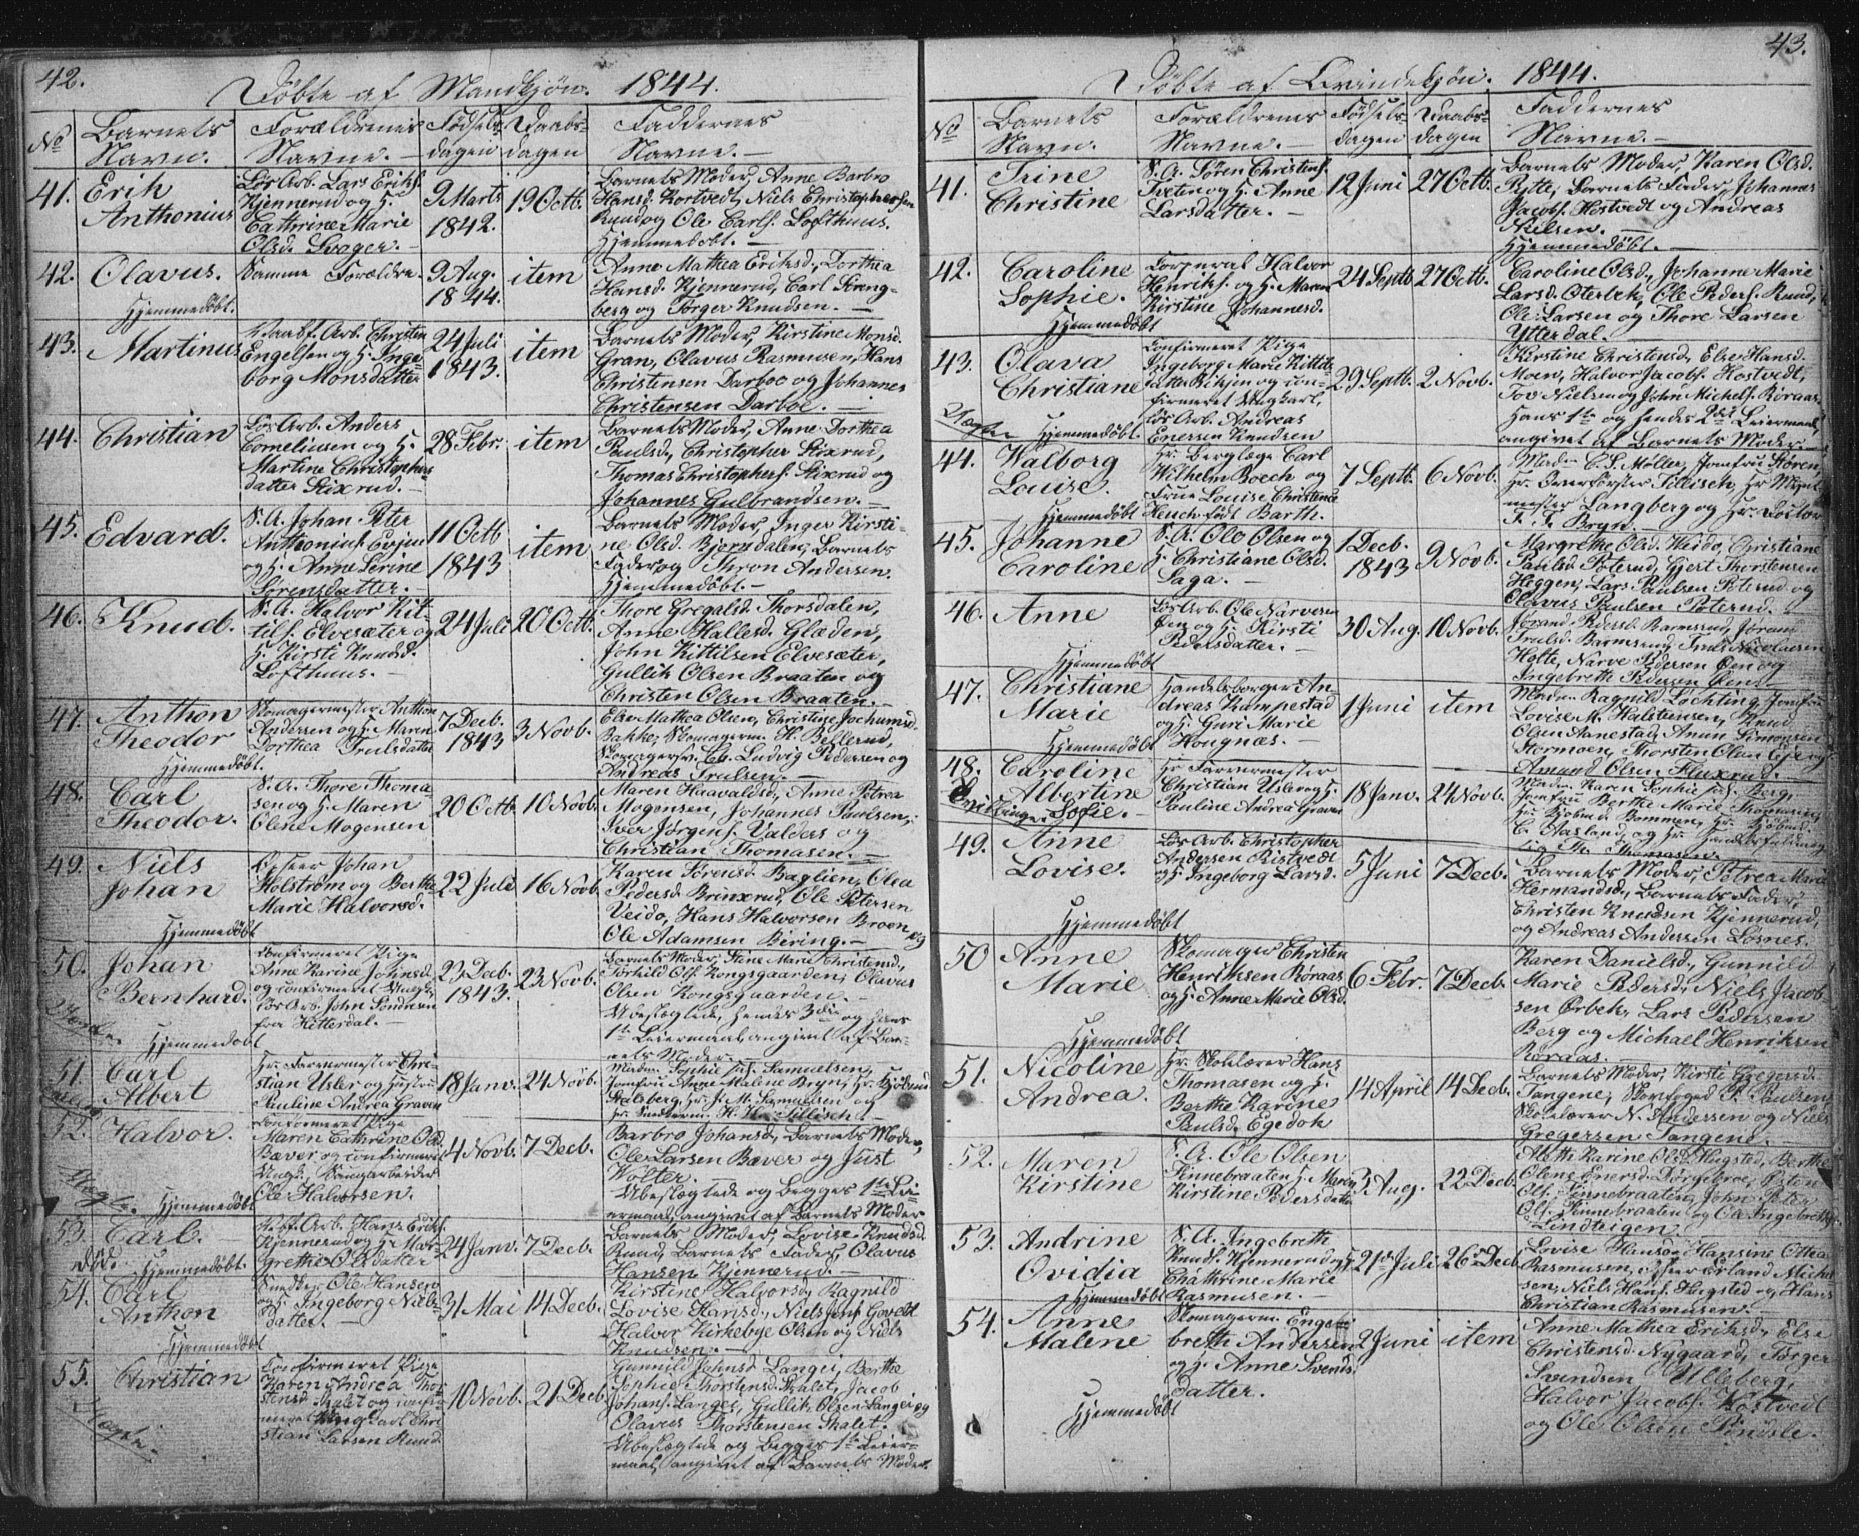 42.
Døbte af Mandkjøn. 1844.
No Barnets Navn. Forældrenes Navne. Fødsels-dagen Daabs-dagen Faddernes Navne.
41.
Erik
Anthonius
Løs Arb. Lars Eriks.
Kjennerud og H.
Cathrine Marie
Olsd. Svager.
9 Marts
1842.
19 Octb.
Barnets Moder, Anne Barbro
Hansd. Kortvedt, Niels Christophersen
Rund og Ole Carls. Lofthuus.
Hjemmedøbt.
42.
Olavus.
Hjemmedøbt.
Samme Forældre.
9 Aug.
1844.
item
Anne Mathea Eriksd., Dorthea
Hansd. Kjennerud, Carl
berg og Torger Knudsen.
43.
Martinus
Arb. Christen
Engelsen og H. Inge-
borg Monsdatter
24 Juli
1843.
item
Barnets Moder, Kirstine Monsd.
Gran, Olavus Rasmusen, Hans
Christensen Darboe og Johannes
Christensen Darboe.
44.
Christian
Løs Arb. Anders
Corneliusen og H.
Martine Christophers
datter Stixrud.
28 Febr.
item
Barnets Moder, Anne Dorthea
Paulsd., Christopher Stixrud,
Thomas Christophers. Stixrud og
Johannes Gulbrandsen.
45.
Edvard.
S. A. Johan Peter
Anthonius. Evju
og H. Anne Serine
Sørensdatter.
11 Octb
1843
item
Barnets Moder, Inger Kirsti-
ne Olsd. Bjerndalen, Barnets
Fader og Thron Andersen.
Hjemmedøbt.
46.
Knud.
S. A. Halvor Kit-
tils. Elvesæter og
H. Kirsti Knudsd.
Lofthuus.
24 Juli
20 Octb.
Thore Gregalsd. Thorsdalen,
Anne Hallesd. Glæden,
John Kittilsen Elvesæter,
Gullik Olsen Braaten og
Christen Olsen Braaten.
47.
Anthon
Theodor
Hjemmedøbt.
Skomagermester Anthon
Andersen og H. Maren
Dorthea Trulsdatter
7 Decb.
1843
3 Novb.
Else Mathea Olsen, Christine Jochumsd.
Bakke, Skomagerm. H. Bellerud,
Skomagersv. Ch. Ludvig Pedersen og
Andreas Trulsen.
48.
Carl
Theodor.
S. A. Thore Thoma-
sen og H. Maren
Olene Mogensen
20 Octb
10 Novb.
Maren Haavaldsd., Anne Petrea
Mogensen, Johannes Paulsen,
Iver Jørgens. Valders og
Christian Thomasen.
49.
Niels
Johan
Hjemmedøbt
Johan
Holstrøm og Berthe
Marie Halvorsd.
22 Juli
16 Novb.
Karen Sørensd. Baglien, Olea
Pedersd. Brinxrud, Ole Petersen
Veido, Hans Halvorsen Broen og
Ole Adamsen Biring.
50.
Johan
Bernhard.
Hjemmedøbt
Confirmeret Pige
Anne Karine Johnsd.
og confirmeret Ungk.
Løs Arb. John Sondresen
fra Hitterdal.
23 Decb.
1843.
23 Novb.
Barnets Moder, Stine Marie Christensd.,
Torkild Ols. Kongsgaarden, Olavus
Olsen Kongsgaarden.
Ubeslægtede, hendes 3die og hans
1te Leiermaal, angivet af Bar-
nets Moder.
51.
Carl
Albert
Hr. Farvermester Chri-
stian Usler og Hustru
Pauline Andrea Graven
18 Janv.
24 Novb.
Madm. Sophie f. Samuelsen,
Jomfru Anne Malene Bryn, Hr.
Stalsberg, Hr. J. M. Samuelsen og
Hr. H. H. Tillisch.
52.
Halvor.
Hjemmedøbt
Confirmeret Pige
Maren Cathrine Olsd.
Bæver og confirmeret
Ungk. Vaagarbeider
Ole Halvorsen.
4 Novb.
7 Decb.
Barbro Johansd., Barnets Moder,
Ole Larsen Bæver og Just
Wolter.
Ubeslægtede og begges 1ste Lei-
ermaal, angivet af Barnets Moder
53.
Carl.
død.
Hjemmedøbt.
Arb. Hans Eriks.
Kjennerud og H. Mar-
grethe Olsdatter
24 Janv.
7 Decb.
Barnets Moder, Lovise Knudsd.
Rund, Barnets Fader, Olavus
Hansen Kjennerud.
54.
Carl
Anthon
Hjemmedøbt
Snedker Ole Hansen
og H. Ingeborg Niels-
datter.
31 Mai
14 Decb.
Kirstine Halvorsd., Ragnild
Lovise Hansd., Niels Jens.
Halvor Kirkebye Olsen og Niels
Knudsen.
55.
Christian
Uægte.
Confirmeret Pige
Karen Andrea Thor-
stensd. Skalet og confir-
meret Ungkarl Chri-
stian Larsen Rund.
10 Novb.
21 Decb
Gunnild Johnsd. Langei, Berthe
Sophie Thorstensd. Skalet, Jacob
Johans. Langei, Gullik Olsen Langei og
Olavus Thorstensen Skalet.
Ubeslægtede og begges 1te Leier-
maal, angivet af Barnets Moder.
43.
Døbte af Qvindekjøn. 1844.
No Barnets Navn. Forældrenes Navne. Fødsels-dagen Daabs-dagen Faddernes Navne.
41.
Trine
Christine
S. A. Søren Christens.
Tveten og H. Anne
Larsdatter.
12 Juni
27 Octb.
Barnets Moder, Karen Olsd.
Rytte, Barnets Fader, Johannes
Jacobs. Hostvedt og Andreas
Nielsen.
Hjemmedøbt.
42.
Caroline
Sophie.
Hjemmedøbt
Corporal Halvor
Henriks. og H. Maren
Kirstine Johannesd.
24 Septb
27 Octb.
Caroline Olsd., Johanne Marie
Larsd. Oterbek, Ole Peders. Rund,
Ole Larsen og Thore Larsen
Ytterdal.
43.
Olava
Christiane
Uægte
Hjemmedøbt.
Confirmeret Pige
Ingeborg Marie Kittils-
datter og con-
firmeret Ungkarl,
Løs Arb. Andreas
Enersen Knudsen
29 Septb.
2 Novb.
Kirstine Christensd., Else Hansd.
Moen, Halvor Jacobs. Hostvedt,
Tov Nielsen og John Michels. Røraas.
Hans 1te og hendes 2det Leiermaal,
angivet af Barnets Moder.
44.
Walborg
Louise.
Hjemmedøbt
Hr. Berglæge Carl
Wilhelm Boeck og
Frue Louise Christence
Heuch født Barth.
7 Septb.
6 Novb.
Madm. C. S. Møller, Jomfru Støren,
Hr. Overførster Tillisch, Hr. Mynt-
mester Langberg og Hr. Doctor
F. F. Bryn.
45.
Johanne
Caroline
S. A. Ole Olsen og
H. Christiane Olsd.
Saga.
1 Decb.
1843
9 Novb.
Margrethe Olsd. Veido, Christiane
Pahlsd. Poterud, Gjert Thorstensen
Heggen, Lars Paulsen Poterud og
Olavus Paulsen Poterud.
46.
Anne
Hjemmedøbt
Løs Arb. Ole Narvesen
Øen og H. Kirsti
Pedersdatter.
30 Aug.
10 Novb.
Jørand Pedersd. Barmsrud, Jørand
Trulsd. Barmsrud, Truls Nicolaisen
Holte, Narve Pedersen Øen og
Ingebreth Pedersen Øen.
47.
Christiane
Marie
Hjemmedøbt
Handelsborger An-
dreas Kumpestad
og H. Guri Marie
Hougnæs.
1 Juni
item
Madm. Ragnild Lochting, Jomfru
Lovise M. Halstensen, Knud
Olsen Aanestad, Anun Simonsen
Stormoen, Thorsten Olsen Eje og
Amund Olsen Fluxrud.
48.
Tvillinge
Caroline
Albertine
Sofie.
Hr. Farvermester
Christian Usler og H.
Pauline Andrea Graven
18 Janv.
24 Novb.
Madm. Karen Sophie f. Berg,
Jomfru Berthe Marie Thomesen,
Hr. Kjøbmd. Bommen, Hr. Kjøbmd.
C. Aasland, og Hr. Handelsfuldmæg-
tig Th. Thomasen.
49.
Anne
Lovise.
Hjemmedøbt
Løs Arb. Christopher
Andersen Ristvedt
og H. Ingeborg Larsd.
5 Juni
7 Decb.
Barnets Moder, Petrea Marie
Hermandsd., Barnets Fader,
Christen Knudsen Kjennerud,
og Andreas Andersen Losnes.
50
Anne
Marie
Hjemmedøbt
Skomager Christen
Henriksen Røraas
og H. Anne Marie Olsd.
6 Febr.
7 Decb.
Karen Danielsd., Gunnild
Marie Pedersd., Niels Jacob-
sen Ørbek, Lars Pedersen
Berg og Michael Henriksen
Røraas.
51.
Nicoline
Andrea.
Hr. Skolelærer Hans
Thomasen og H.
Berthe Karine
Paulsd. Egedok
14 April
14 Decb.
Barnets Moder, Kirsti Gregersd.
Tangene, Skovfoged P. Paulsen,
Skolelærer N. Andersen og Niels
Gregersen Tangene.
52.
Maren
Kirstine
S. A. Ole Olsen
Finnebraaten, H. Maren
Kirstine Pedersdatter
3 Aug.
22 Decb.
Aleth Karine Olsd. Hegsted, Berthe
Olene Enersd. Dørgebroe, Østen
Ols. Finnebraaten, John Peter
Ols. Finnebraaten og Ca. Ingebreths.
Lindteigen.
53.
Andrine
Ovidia
Hjemmedøbt
S. A. Ingebreth
Knuds. Kjennerud og H.
Chathrine Marie
Rasmusen.
21de Juli
26de Decb.
Lovise Hansd., Hansine Ottea
Rasmusen, Erland Miche-
sen, Niels Hans. Hegsted og Hans
Christian Rasmusen.
54.
Anne
Malene
Hjemmedøbt
Skomagerm. Engel-
breth Andersen
og H. Anne Svends-
datter.
2 Juni
item
Anne Mathea Eriksd., Else
Christensd. Nygaard, Torger
Svendsen Ulleberg,
Halvor Jacobs. Hostvedt
og Ole Olsen Pindsle.